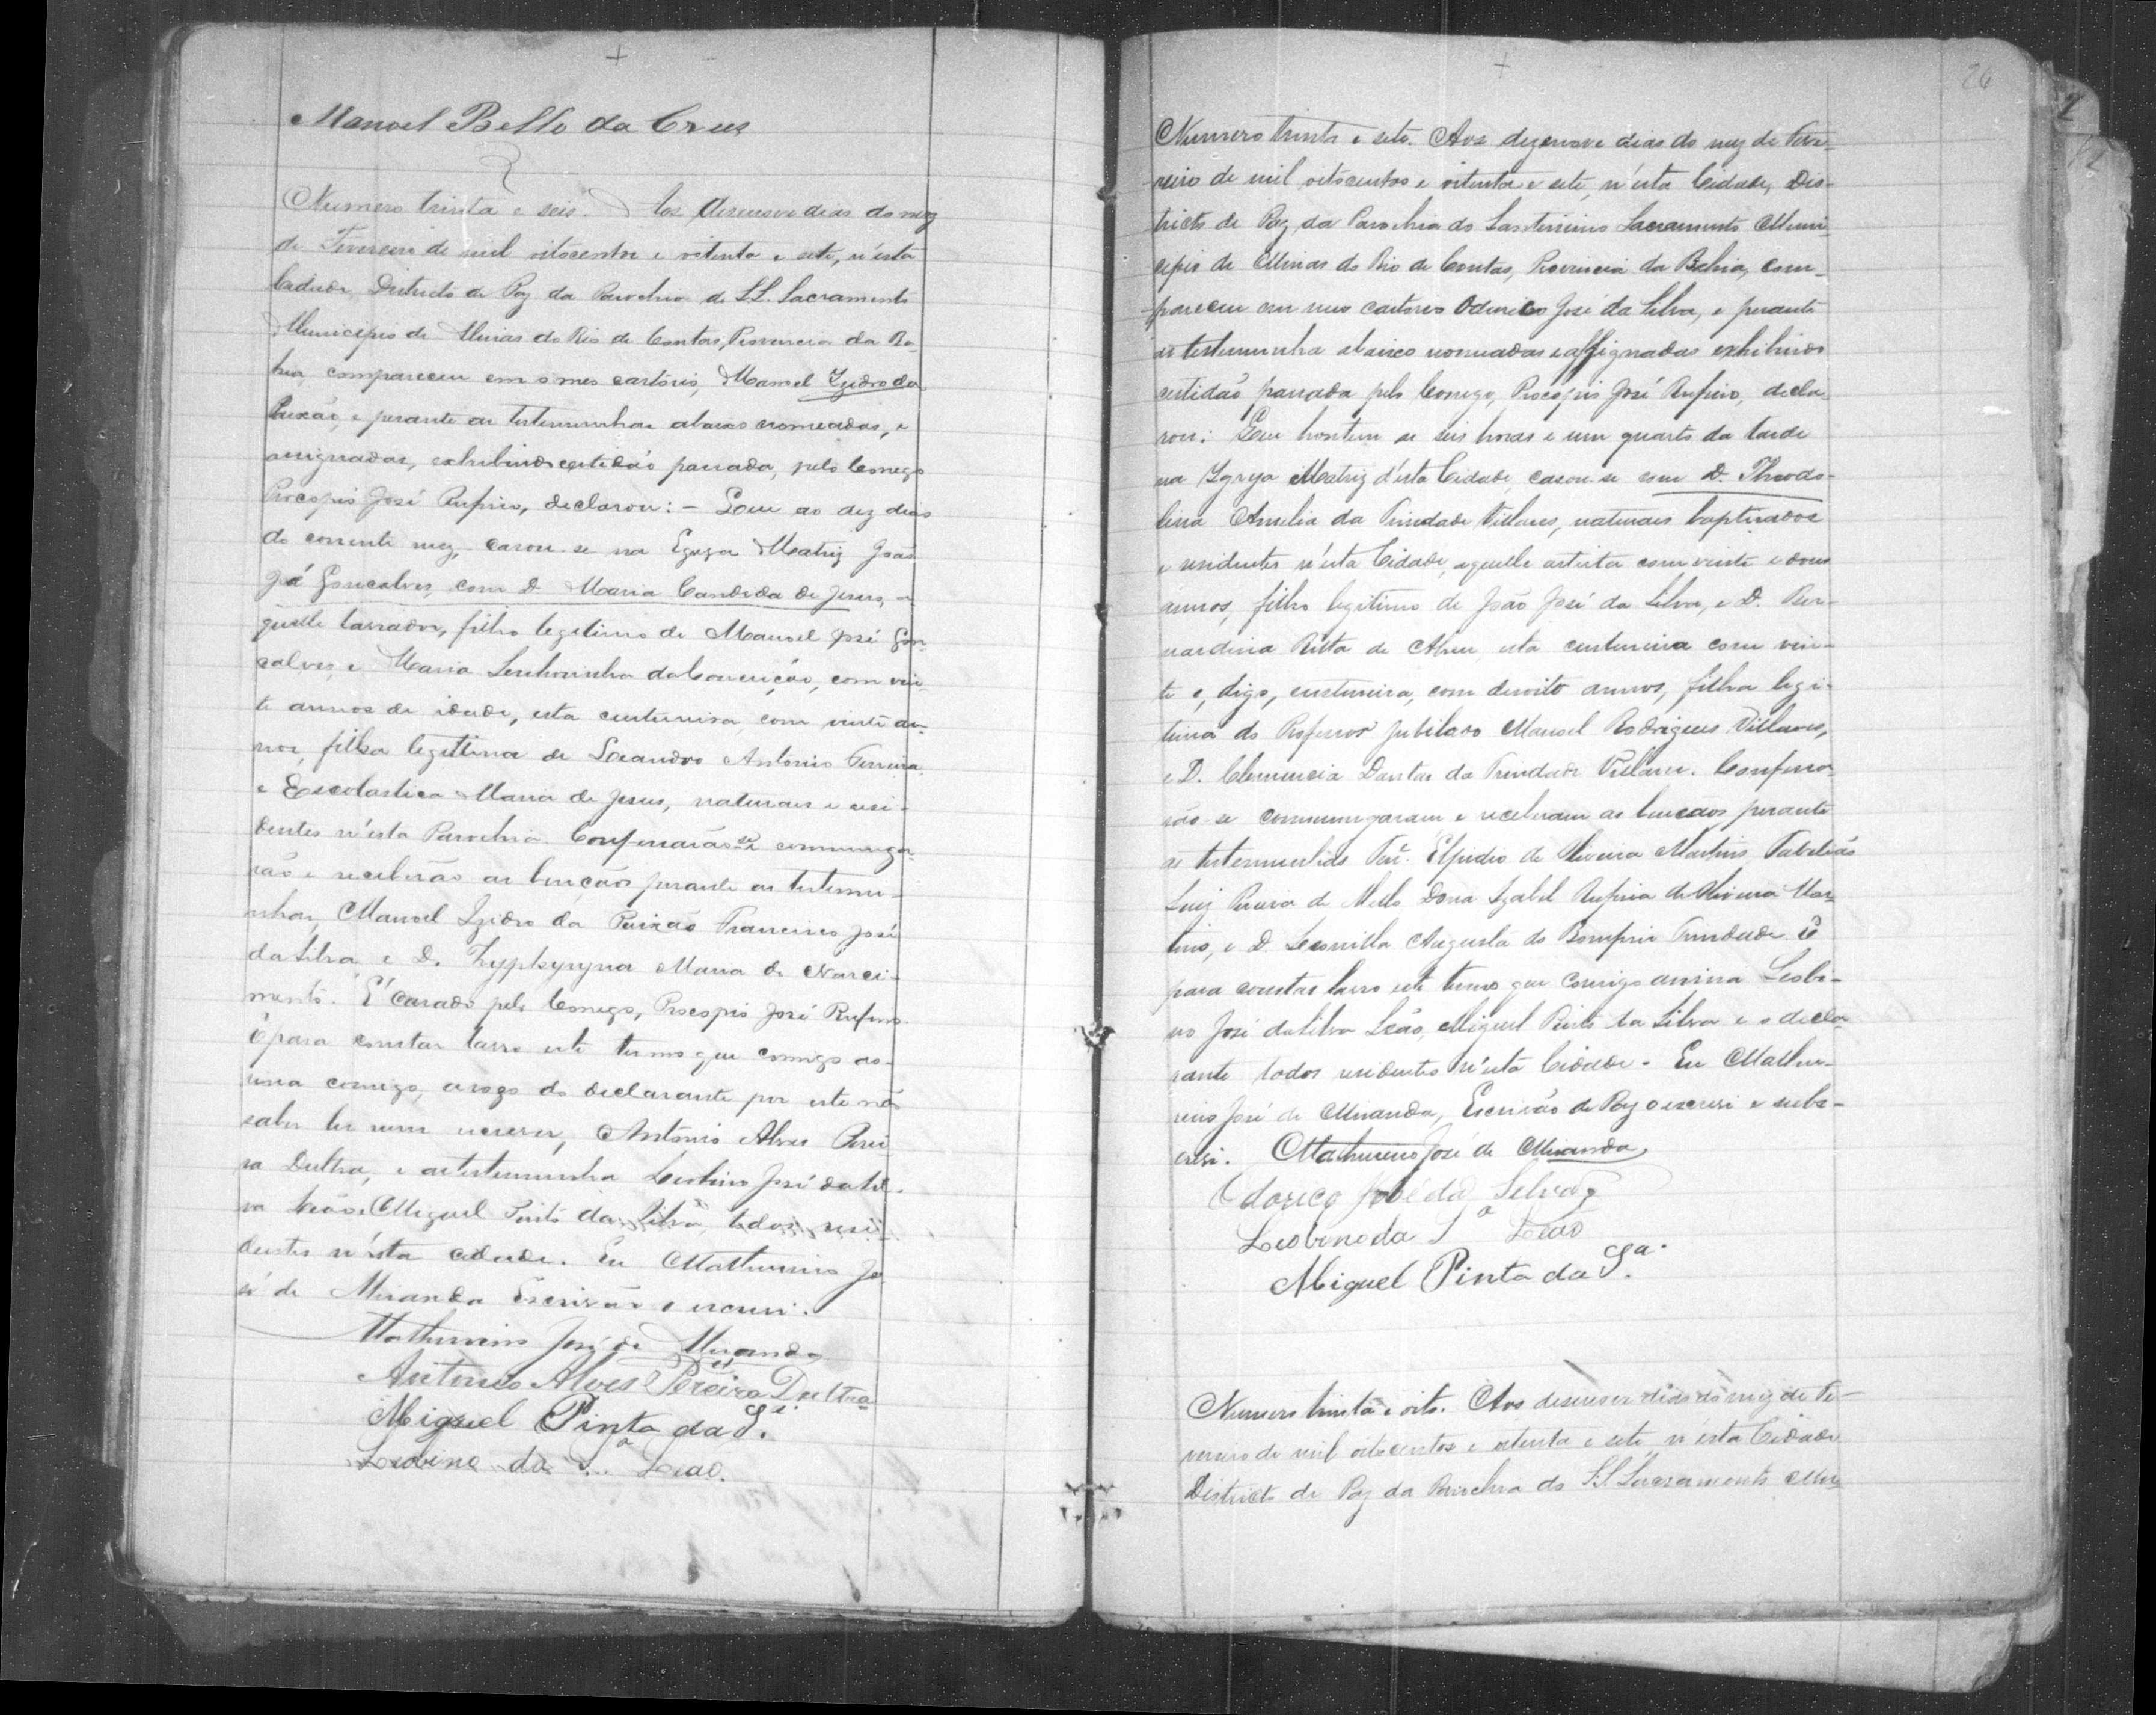 Manoel Bello da Cruz
Numero trinta e seis. Aos desenove dias do mez
de Fevereiro de mil oitocentos e oitenta e sete, n'esta
Cidade, Districto de Paz da Parochia do S.S. Sacramento
Municipio de Minas do Rio de Contas, Provincia da Ba-
hia, compareceu em o meo cartorio, Manoel Izidro da
Paixão, e perante as testemunhas abaixo nomeadas, e
assignadas, exhibindo certidão passada, pelo Conego
Procopio José Rufino, declarou: - Que ao dez dias
do corrente mez, casou-se na Egreja Matriz João
José Gonçalves, com D. Maria Candida de Jesus, a-
quelle lavrador, filho legitimo de Manoel José Gon-
calves, e Maria Senhorinha da Conceição, com vin-
te annos de idade, esta custureira, com vinte an-
nos, filha legittima de Leandro Antonio Ferreira,
e Escolastica Maria de Jesus, naturais e resi-
dentes n'esta Parochia. Confessarão-se communga-
rão e receberão as bençãos perante as testemu-
nhas, Manoel Izidro da Paixão Francisco José
da Silva e D. Zyphyryna Maria do Nasci-
mento. É Casado pelo Conego, Procopio José Rufino.
E para constar lavro este termo que comigo as-
sina comigo, a rogo do declarante por este não
saber ler nem escrever, Antonio Alves Perei
ra Dultra, e as testemunha Leobino José da Sil-
va Leão e Miguel Pinto da Silva, todos resi-
dentes n'esta cidade. Eu Mathurino Jo
sé de Miranda Escrivão o escrevi.
Mathurino José de Miranda
Antonio Alves Pereira Dultra
Miguel Pinto da S.ª
Leobino da S.ª Leão.
26
Numero trinta e sete. Aos dezenove dias do mez de Feve-
reiro de mil oitocentos e oitenta e sete, n'esta Cidade, Dis-
tricto de Paz da Parochia do Santissimo Sacramento Muni-
cipio de Minas do Rio de Contas, Provincia da Bahia, com-
pareceu em meu cartorio Odorico José da Silva, e perante
as testemunha abaixo nomeadas e assignadas exhibindo
certidão passada pelo Conego, Procopio José Rufino, decla-
rou: Que hontem as seis horas e um quarto da tarde
na Igreja Matriz d'esta Cidade, casou-se com D. Theodo-
lina Amelia da Trindade Villares, naturais baptisados
e residentes n'esta Cidade, aquelle artista com vinte e dous
annos, filho legitimo de João José da Silva, e D. Ber-
nardina Ritta de Abreu, esta custureira com vin-
te e, digo, custureira, com desoito annos, filha legi-
tima do Professor Jubilado Manoel Rodrigues Villares,
e D. Clemencia Dantas da Trindade Villares. Confessa-
rão-se commungaram e receberam as bencãos perante
as testemunhas Ten.e Elpidio de Oliveira Martins Tabelião
Luiz Pereira de Mello Dona Izabel Rufina de Oliveira Mar-
tins, e D. Leonilla Augusta do Bomfim Trindade. E
para constar lavro este termo que comigo assina Leobi-
no José da Silva Leão, Miguel Pinto da Silva e o decla-
rante todos residentes n'esta Cidade. Eu Mathu-
rino José de Miranda, Escrivão de Paz o escrevi e subs-
crevi. Mathurino José de Miranda,
Odorico José da Silva
Leobino da S.ª Leão
Miguel Pinto da S.ª
Numero trinta e oito. Aos desenove dias do mez de Fe-
vereiro de mil oitocentos e oitenta e sete n'esta Cidade
Districto de Paz da Parochia do S.S. Sacramento Mu-